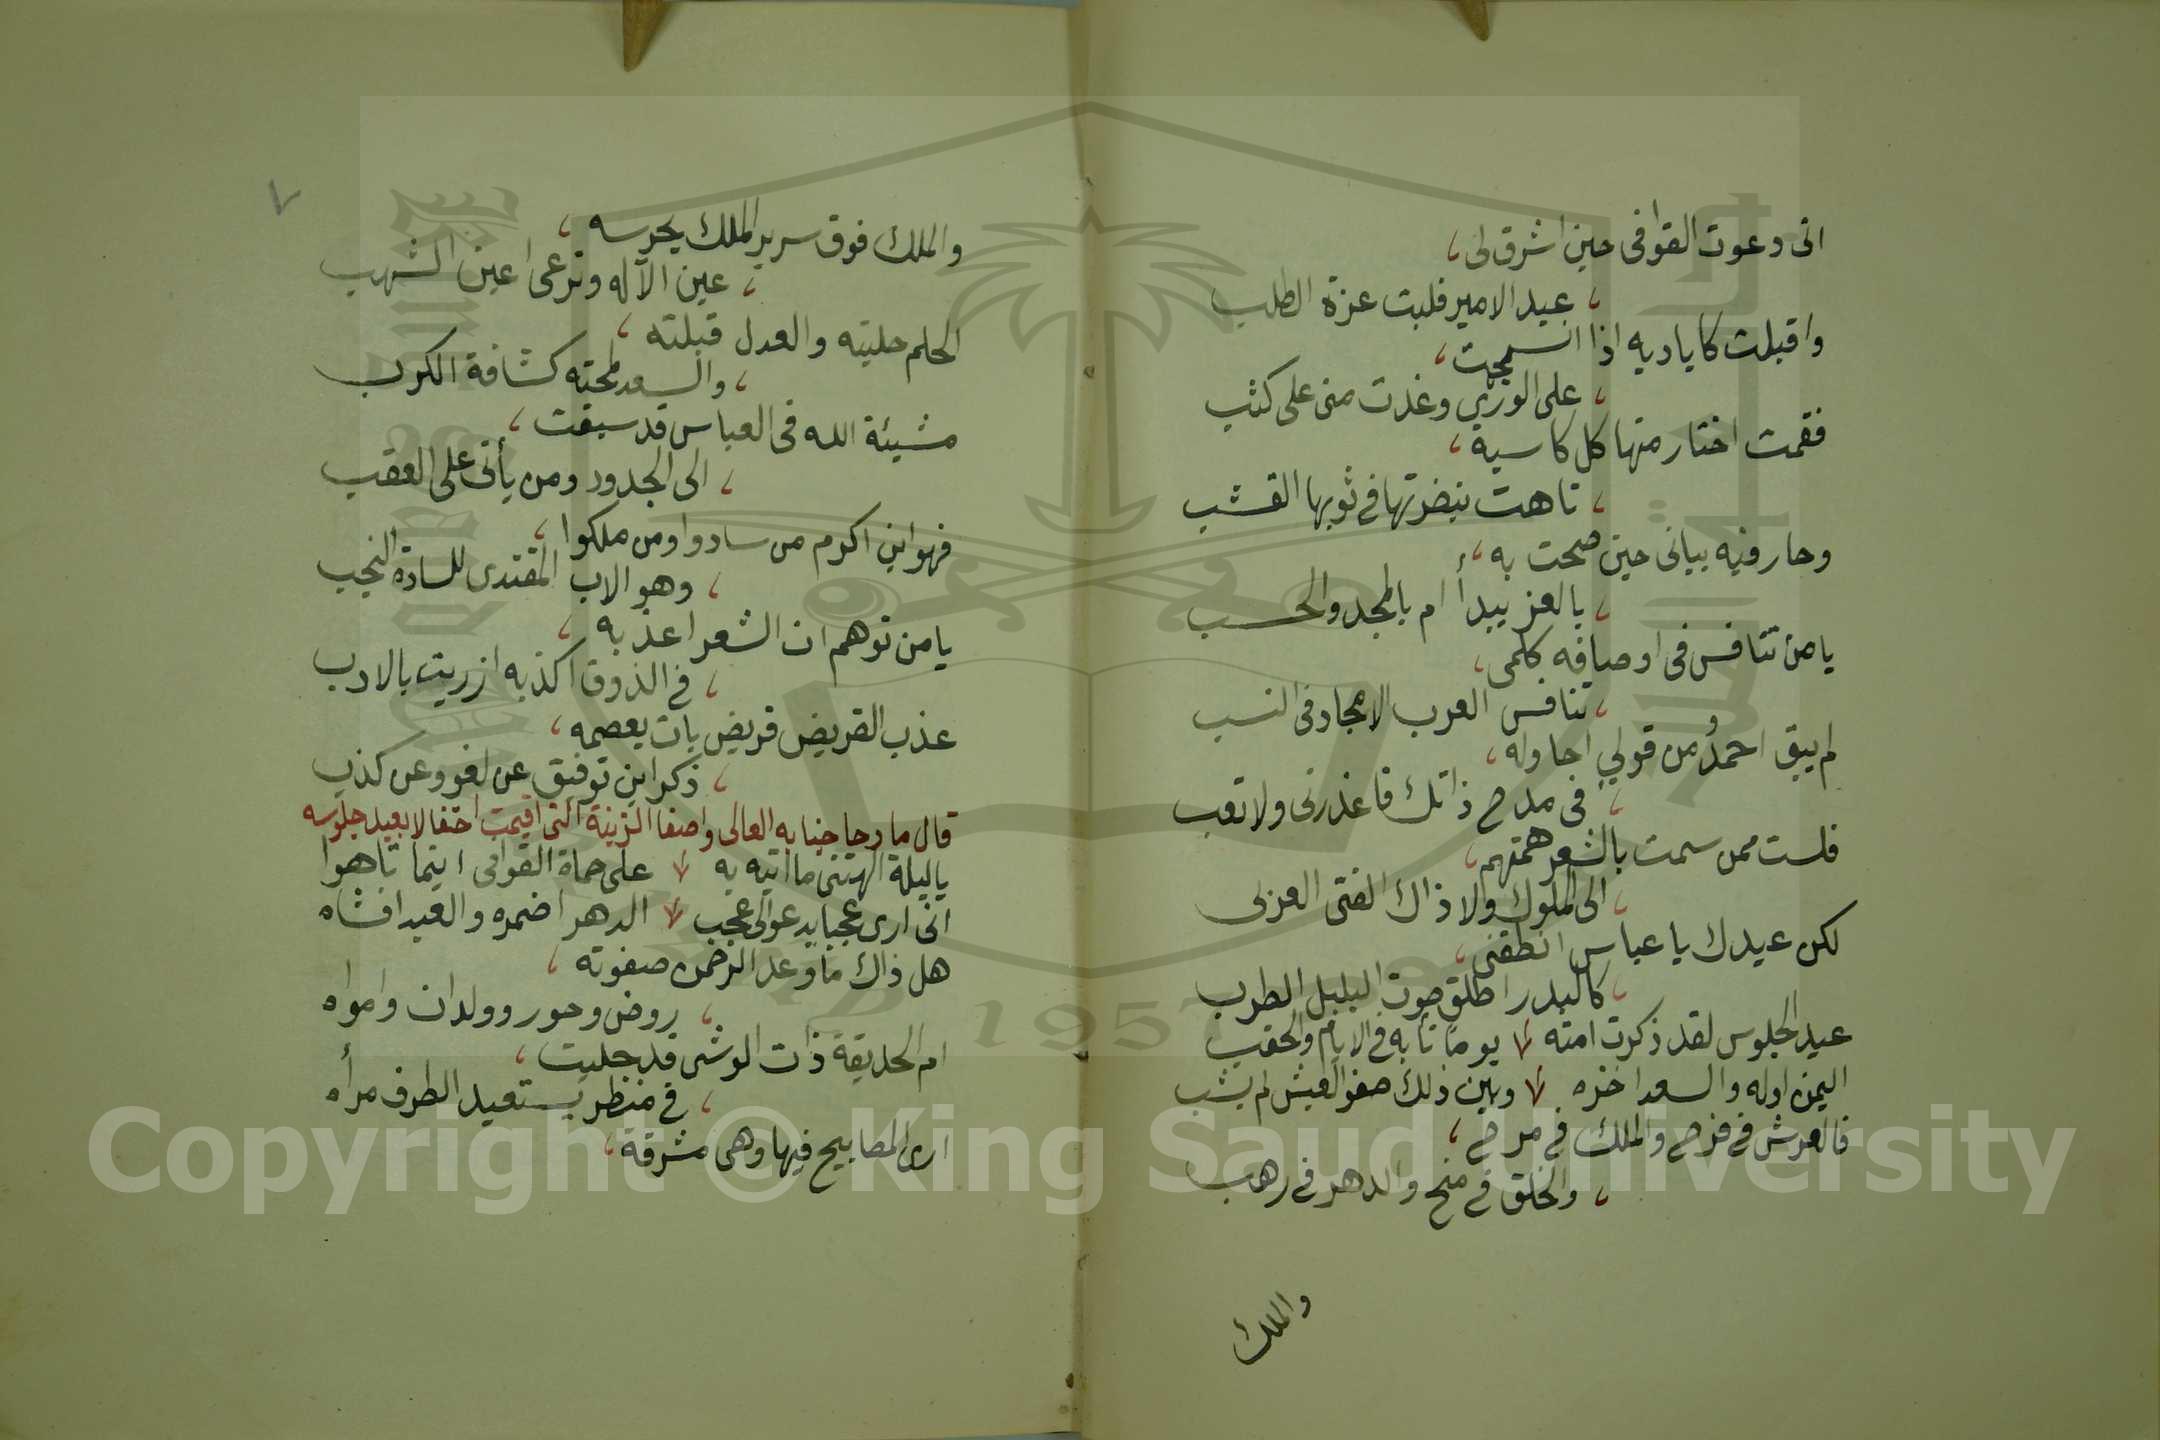 انى دعوت القوافى حين اشرق لى ،
، عيد الامير فلبت عزة الطلب
واقبلت كاياديه اذا انسجمت ،
، على الورى وغدت منى على كثب
فقمت اختار منها كل كاسية ،
، تاهت بنضرتها فى ثوبها القشب
وحار فيه بيانى حين صحت به ،
، بالعز يبدأ ام بالمجد والحسب
يا من تنافس فى اوصافه كلمى ،
، تنافس العرب الامجاد فى النسب
لم يبق احمدُ من قولي احاوله ،
، فى مدح ذاتك فاعذرنى ولا تعب
فلست ممن سمت بالشعر همتهم ،
، الى الملوك ولا ذاك الفتى العزبى
لكن عيدك يا عباس انطقنى ،
، كالبدر اطلق صوت البلبل الطرب
عيد الجلوس لقد ذكرت امته يوما تا به فى الايام والحقب
اليمن اوله والسعد اخره وبين ذلك صفو العيش لم يشب
فالعرش فى فرح والملك فى مرح ،
، والخلق فى منح والدهر فى رهب
والملك
٧
والملك فوق سرير الملك يحرسه ،
، عين الآله وترعى اعين الشهب
الحلم حليته والعدل قبلته ،
، والسعد لمحته كشافة الكرب
مشيئة الله فى العباس قد سبقت ،
، الى الجدود ومن يأتى على العقب
فهو ابن اكرم من سادوا ومن ملكوا ،
، وهو الاب المقتدى للسادة النجب
يا من توهم ان الشعر اعذبه ،
، فى الذوق اكذبه ازريت بالادب
عذب القريض قريض بات يعصمه ،
، ذكر ابن توفيق عن لغو وعن كذب
قال مادحا جنابه العالى واصفا الزينة التى اقيمت احتفالا بعيد جلوسه
يا ليلة الهتنى ما اتيه به على حماة القوافى اينما تاهوا
انى ارى عجبا يدعو الى عجب الدهر اضمره والعيد افشاه
هل ذاك ما وعد الرحمن صفوته ،
، روض وحور وولدان وامواه
ام الحديقة ذات الوشى قد جليت ،
، فى منظر يستعيد الطرف مرأه
ارى المصابيح فيها وهى مشرقة ،
Copyright © King Saud University
1957